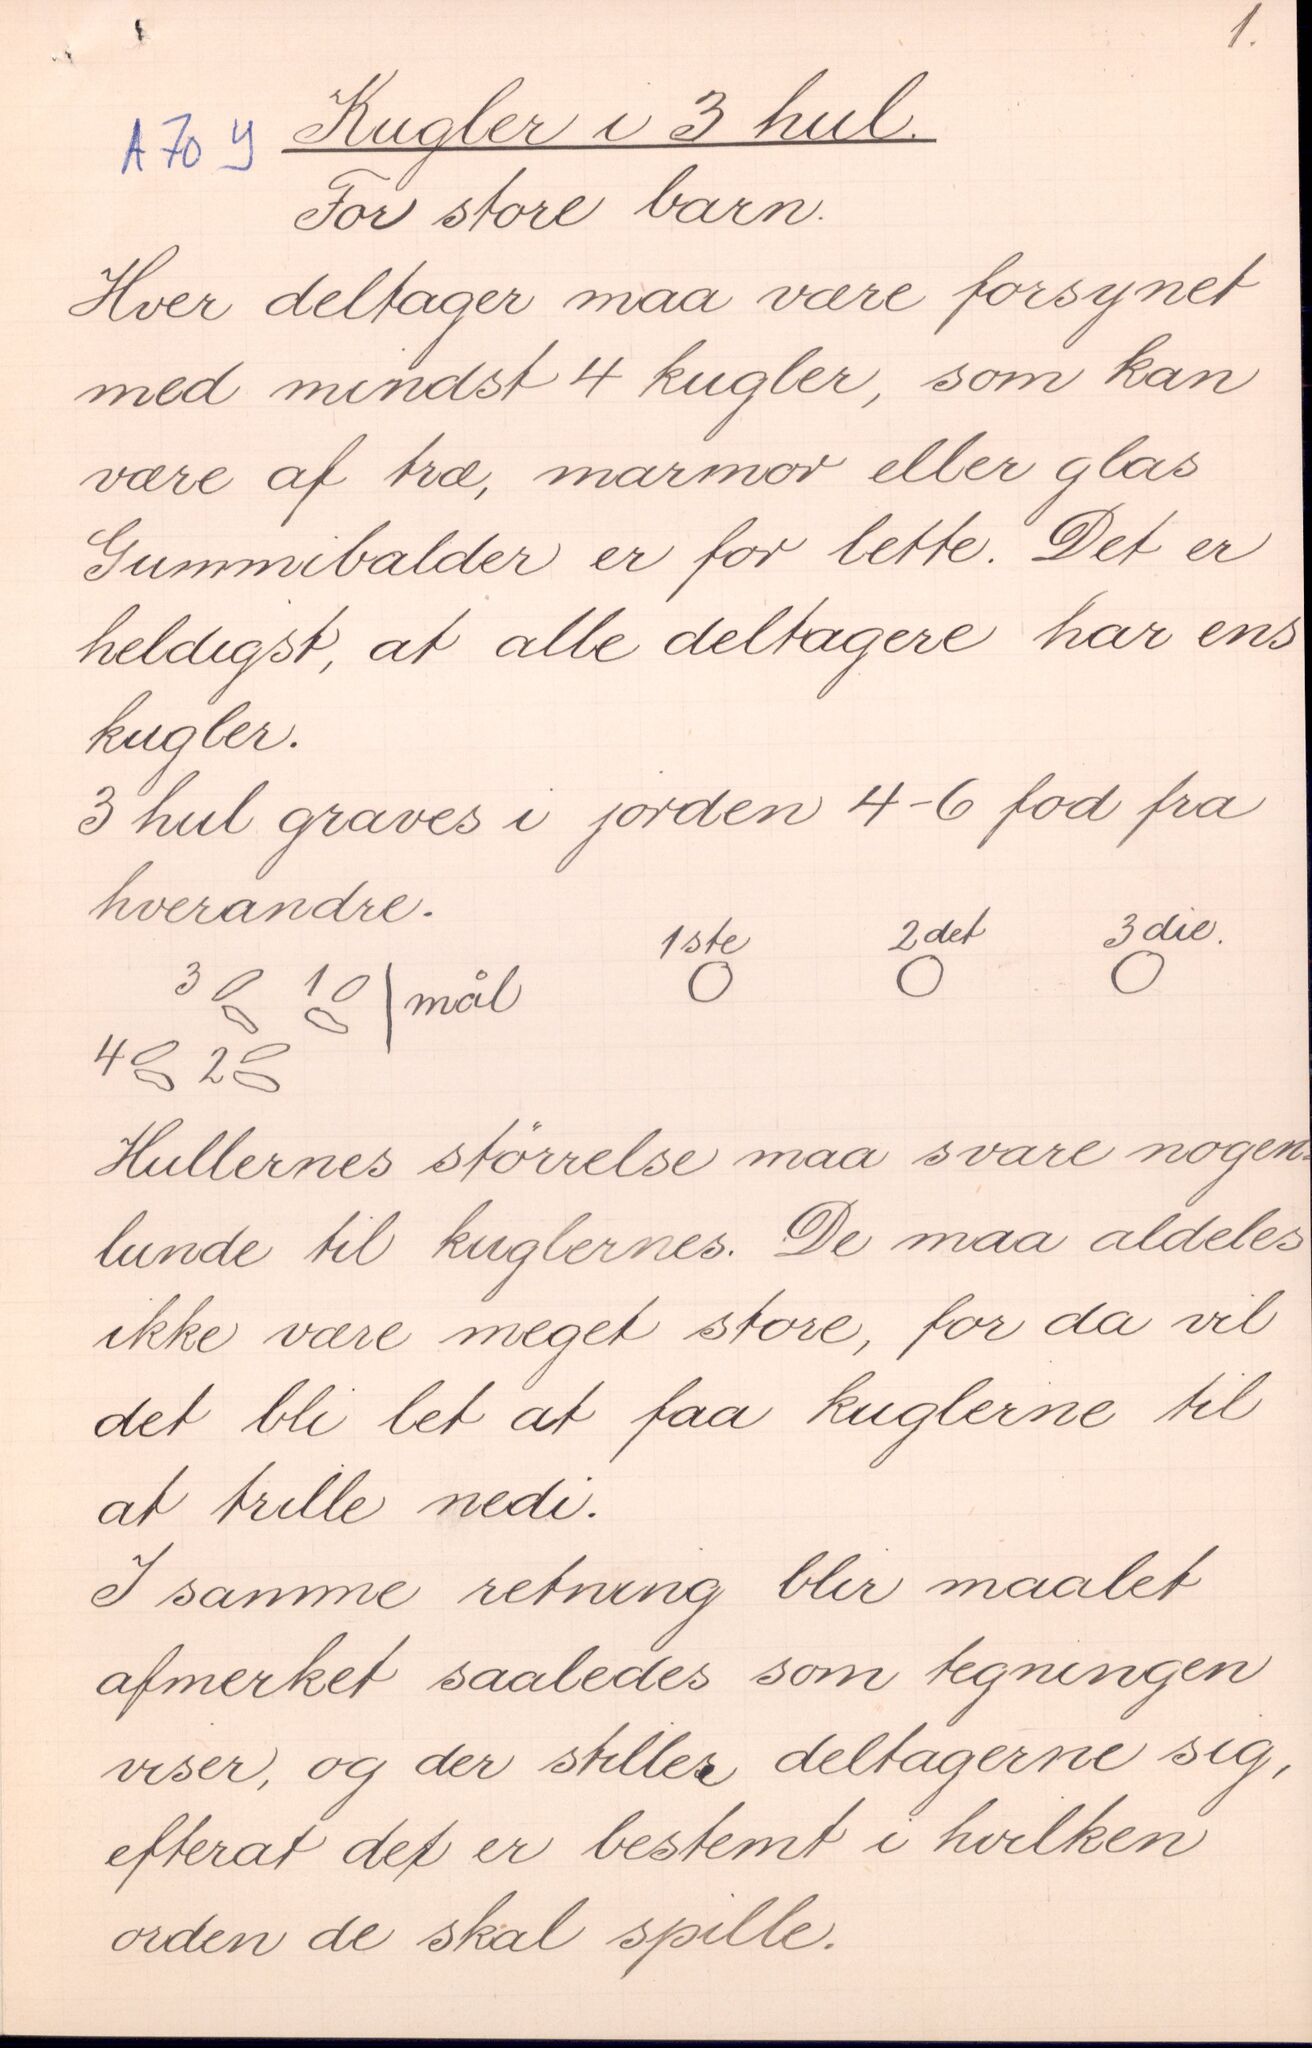 1.
A 70 y
Kugler i 3 hul.
For store barn.
Hver deltager maa være forsynet
med mindst 4 kugler, som kan
være af træ, marmor eller glas
Gummibalder er for lette. Det er
heldigst, at alle deltagere har ens
kugler.
3 hul graves i jorden 4-6 fod fra
hverandre.
1ste 2det 3die.
3 1 mål
4 2
Hullernes störrelse maa svare nogen=
lunde til kuglernes. De maa aldeles
ikke være meget store, for da vil
det bli let at faa kuglerne til
at trille nedi.
I samme retning blir maalet
afmerket saaledes som tegningen
viser, og der stiller deltagerne sig,
efterat det er bestemt i hvilken
orden de skal spille.